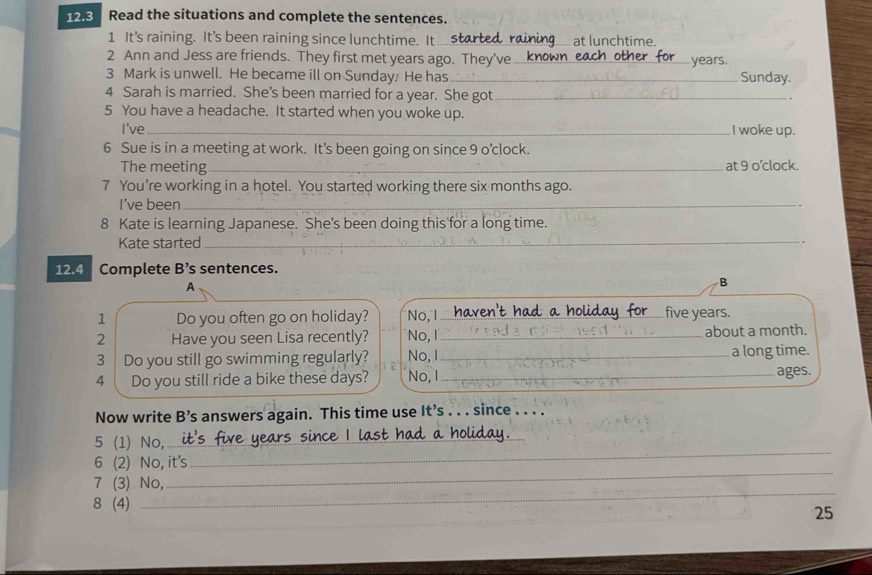 12.3 Read the situations and complete the sentences.
1 It's raining. It's been raining since lunchtime. It started raining at lunchtime.
2 Ann and Jess are friends. They first met years ago. They've known each other for years.
3 Mark is unwell. He became ill on Sunday. He has Sunday.
4 Sarah is married. She's been married for a year. She got .
5 You have a headache. It started when you woke up.
I've I woke up.
6 Sue is in a meeting at work. It's been going on since 9 o'clock.
The meeting at 9 o'clock.
7 You're working in a hotel. You started working there six months ago.
I've been .
8 Kate is learning Japanese. She's been doing this for a long time.
Kate started .
12.4 Complete B's sentences.
A B
1 Do you often go on holiday? No, I haven't had a holiday for five years.
2 Have you seen Lisa recently? No, I about a month.
3 Do you still go swimming regularly? No, I a long time.
4 Do you still ride a bike these days? No, I ages.
Now write B's answers again. This time use It's . . . since . . . .
5 (1) No, it's five years since I last had a holiday.
6 (2) No, it's
7 (3) No,
8 (4)
25